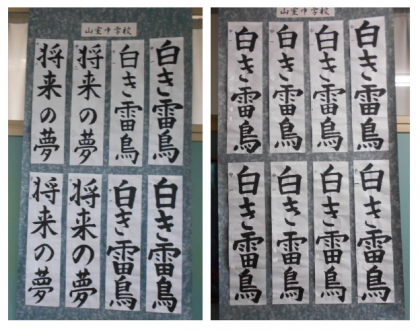 山室中学校
白き雷鳥
白き雷鳥
将来の夢
将来の夢
白き雷鳥
白き雷鳥
将来の夢
将来の夢
山室中学校
白き雷鳥
白き雷鳥
白き雷鳥
白き雷鳥
白き雷鳥
白き雷鳥
白き雷鳥
白き雷鳥